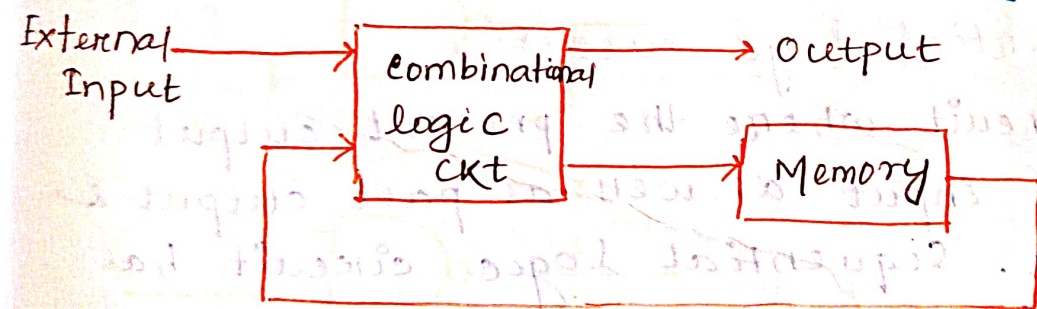 External
Input
combinational
logic
ckt
Output
Memory